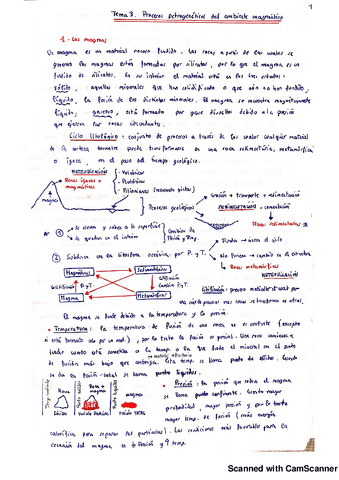 1
Tema 3. Procesos petrogenéticos del ambiente magmático
1.- Los magmas
Un magma es un material rocoso fundido. Las rocas a partir de las cuales se
generan los magmas están formadas por silicatos, por lo que el magma es un
fundido de silicatos. En su interior el material está en los tres estados:
sólido, aquellos minerales que han solidificado o que aún no han fundido,
líquido, la fusión de los distintos minerales. El magma se encuentra mayoritariamente
líquido, gaseoso, está formado por gases disueltos debido a la presión
que ejercen las rocas circundantes.
Ciclo litológico: conjunto de procesos a través de los cuales cualquier material
de la corteza terrestre puede transformarse en una roca sedimentaria, metamórfica
o ígnea, en el paso del tiempo geológico.
METEORIZACIÓN
- Volcánicas
Rocas ígneas o magmáticas
- Plutónicas
- Filonianas
magma
Procesos geológicos
Erosión + transporte + sedimentación
SEDIMENTACIÓN
Rocas sedimentarias
① Se elevan y salen a la superficie
Se quedan en el interior
Cambian de Presión y Temp.
Funden → inicia el ciclo
No funden → cambia su estructura
Rocas metamórficas
② Subducen en la litosfera oceánica por P. y T.
METEORIZACIÓN
Magmáticas
Sedimentarias
Litificación
Magma
Metamórficas
Litificación: proceso mediante el cual por
El magma se funde debido a la temperatura y la presión.
Temperatura: la temperatura de fusión de una roca no es constante (excepto
si está formada solo por un min.), por lo tanto la fusión es parcial. Una roca comienza a
fundir cuando está sometida a la temp. a la que funde el mineral con el punto
de fusión más bajo que contenga. Esta temp. se llama punto de sólidus. Cuando
se da la fusión total se llama punto líquidus.
Roca
Roca + magma
magma
Sólido
Fusión parcial
Fusión total
Presión: la presión que sobre el magma
se llama presión confinante. Cuanto mayor
profundidad, mayor presión y por lo tanto
mayor temp. de fusión (más energía
calorífica para separar las partículas). Las condiciones más favorables para la
creación del magma es ↓ Presión y ↑ temp.
Scanned with CamScanner